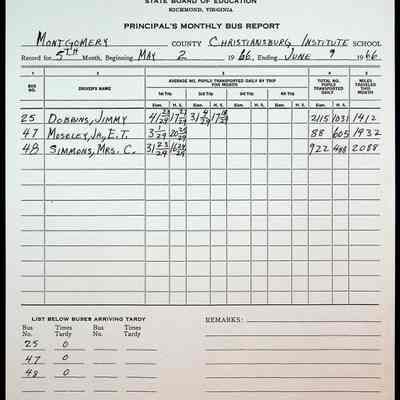 STATE BOARD OF EDUCATION
RICHMOND, VIRGINIA
PRINCIPAL'S MONTHLY BUS REPORT
MONTGOMERY COUNTY CHRISTIANSBURG INSTITUTE SCHOOL
Record for 5TH Month, Beginning MAY 2 1966, Ending JUNE 9 1966
1 2 3 4 5
BUS NO. DRIVER'S NAME AVERAGE NO. PUPILS TRANSPORTED DAILY BY TRIP FOR MONTH TOTAL NO. PUPILS TRANSPORTED DAILY MILES TRAVELED THIS MONTH
1st Trip 2nd Trip 3rd Trip 4th Trip
Elem. H. S. Elem. H. S. Elem. H. S. Elem. H. S. Elem. H. S.
25 DOBBINS, JIMMY 2115 1031 1412
47 MOSELEY, JR., E.T. 88 605 1932
48 SIMMONS, MRS. C. 922 488 2088
LIST BELOW BUSES ARRIVING TARDY REMARKS:
Bus No. Times Tardy Bus No. Times Tardy
25 0
47 0
48 0